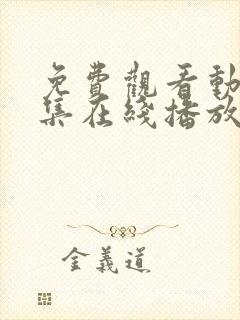 免費觀看動
集在綫播放
金義道